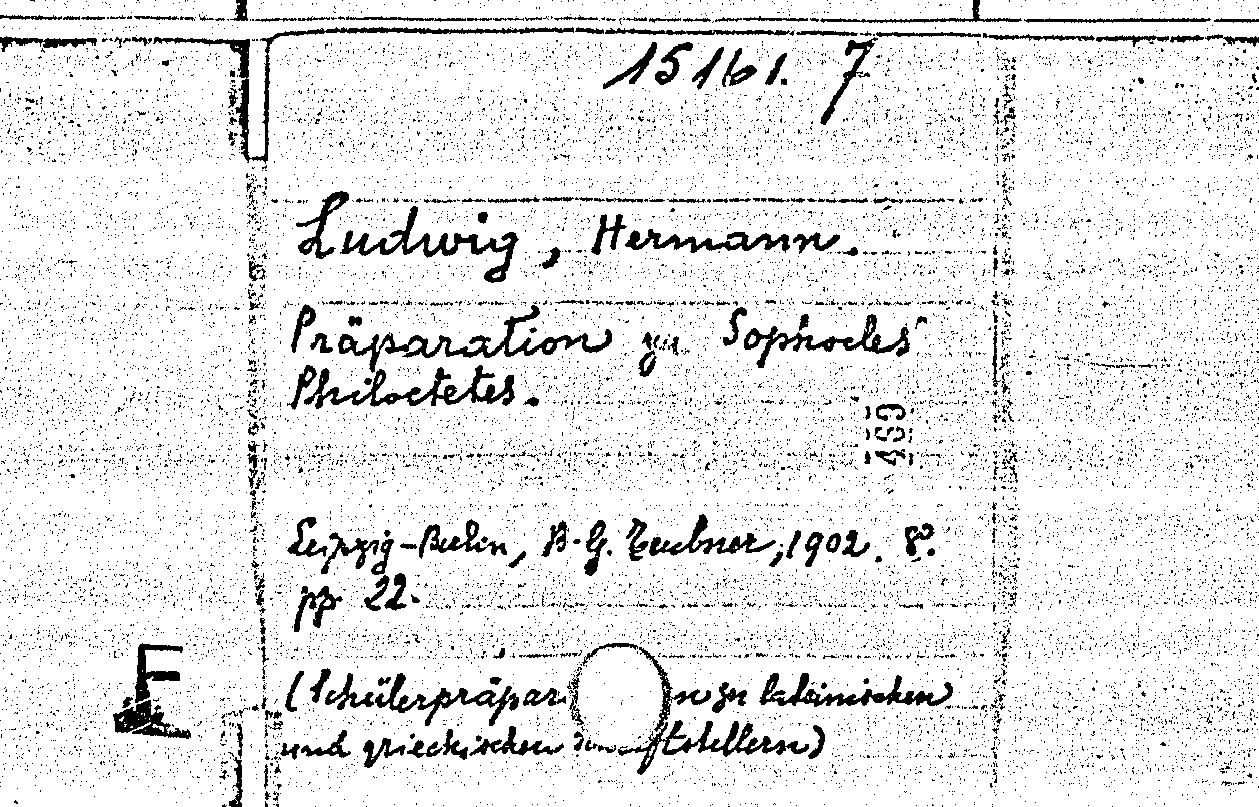 15161. 7
Ludwig, Hermann.
Präparation zu Sophocles'
Philoctetes.
469
Leipzig-Berlin, B. G. Teubner, 1902. 8º.
pp. 22.
E
(Schülerpräpar n zu lateinischen
und griechischen ftstellern)